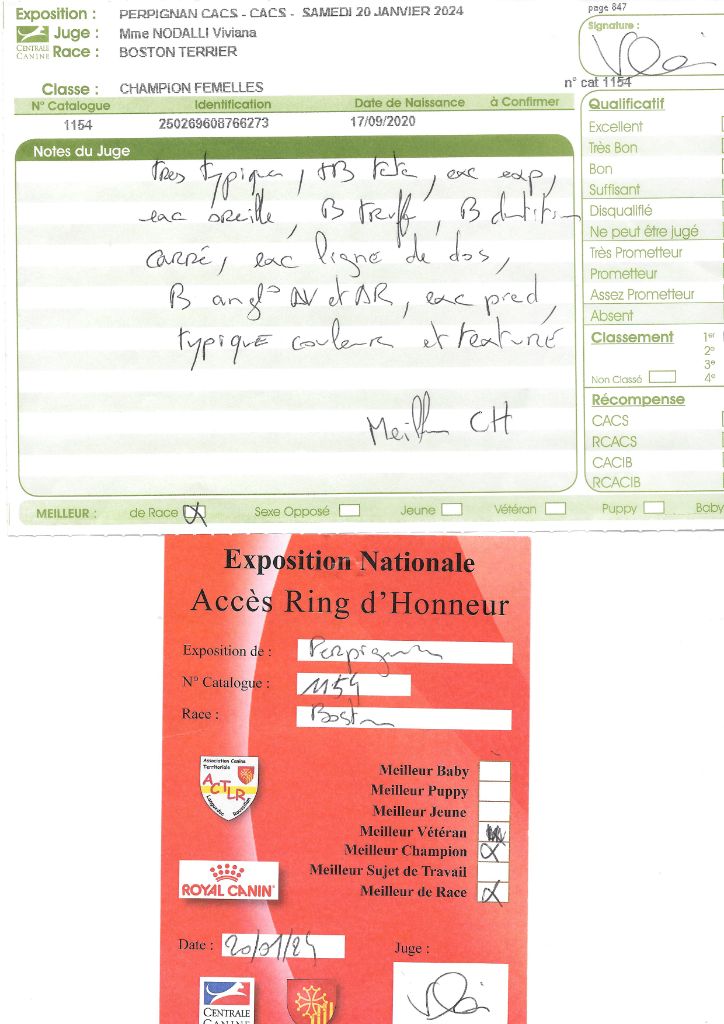 Exposition : PERPIGNAN CACS - CACS - SAMEDI 20 JANVIER 2024
page 847
Juge : Mme NODALLI Viviana
Signature :
CENTRALE CANINE
Race : BOSTON TERRIER
Classe : CHAMPION FEMELLES
n° cat 1154
N° Catalogue Identification Date de Naissance à Confirmer
1154 250269608766273 17/09/2020
Notes du Juge
très typique, TB tete, exc exp,
exc oreille, B truff, B dentition
carré, exc ligne de dos,
B angl° AV et AR, exc pied,
typique couleur et texture
Meilleur CH
Qualificatif
Excellent
Très Bon
Bon
Suffisant
Disqualifié
Ne peut être jugé
Très Prometteur
Prometteur
Assez Prometteur
Absent
Classement 1er
2e
3e
Non Classé 4e
Récompense
CACS
RCACS
CACIB
RCACIB
MEILLEUR : de Race X Sexe Opposé Jeune Vétéran Puppy Baby
Exposition Nationale
Accès Ring d'Honneur
Exposition de : Perpignan
N° Catalogue : 1154
Race : Boston
Association Canine Territoriale
ACTLR
Languedoc Roussillon
Meilleur Baby
Meilleur Puppy
Meilleur Jeune
Meilleur Vétéran
Meilleur Champion X
Meilleur Sujet de Travail
Meilleur de Race X
ROYAL CANIN
Date : 20/01/24 Juge :
CENTRALE
CANINE